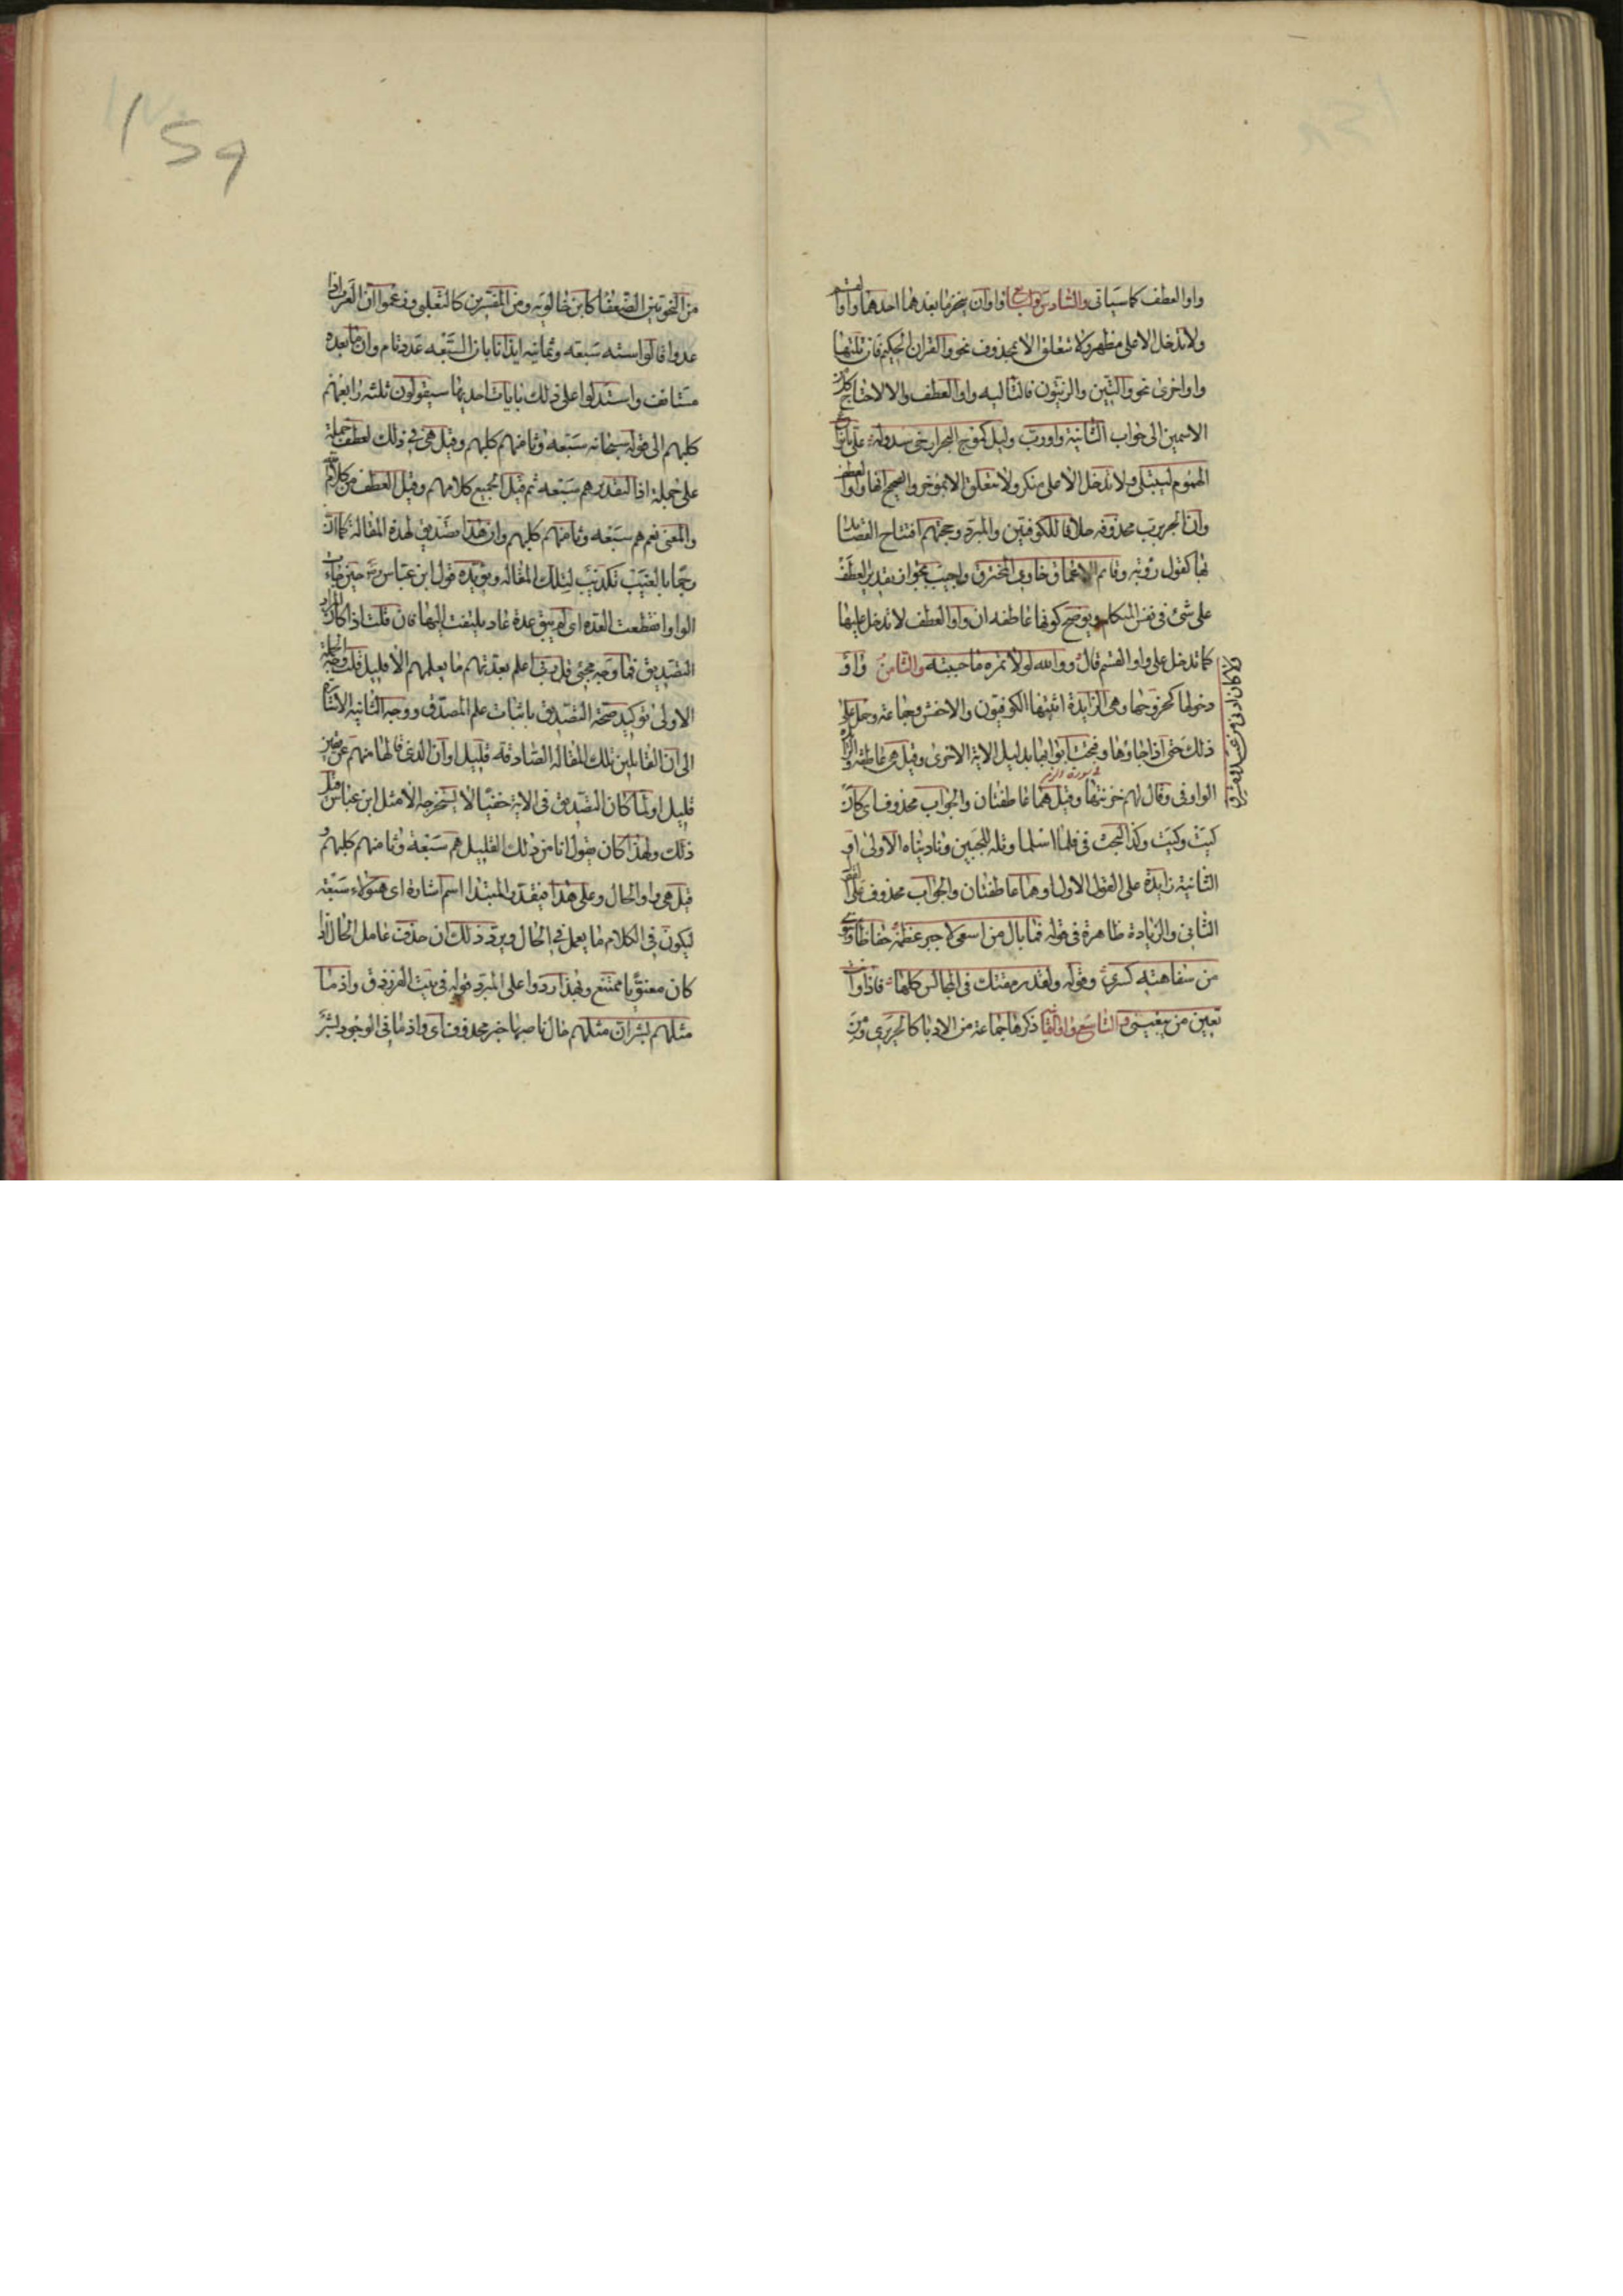 واو العطف كما سياتى والسادس والسابع واوان ينجر ما بعدهما احدهما واو القسم
ولا تدخل الا على مظهر ولا تتعلق الا بمحذوف نحو والقران الحكيم فان تلتها
واو اخرى نحو والتين والزيتون فالتاليه واو العطف والا لاحتاج كل من
الاسمين الى جواب الثانية واو رب وليل كموج البحر ارخى سدوله على بانواع
الهموم ليبتلى ولا تدخل الا على منكر ولا تتعلق الا بموخر والصحيح انها واو العطف
وان الجر برب محذوفه خلافا للكوفيين والمبرد وحجتهم افتتاح القصايد
بها كقول روبه وقاتم الاعماق خاوى المخترق واجيب بجواز تقدير العطف
على شئ فى نفس المتكلم ويوضح كونها عاطفه ان واو العطف لا تدخل عليها
كما تدخل على واو القسم قال ووالله لولا تمره ما حببته والثامن واو
دخولها كخروجها وهى الزايدة اثبتها الكوفيون والاخفش وجماعة وحمل على
ذلك حتى اذا جاؤها وفتحت ابوابها بدليل الاية الاخرى وقيل هى عاطفه والزايدة
الواو فى وقال لهم خزنتها وقيل هما عاطفتان والجواب محذوف اى كان
كيت وكيت وكذا البحث فى فلما اسلما وتله للجبين وناديناه الاولى او
الثانية زايدة على القول الاول او هما عاطفتان والجواب محذوف على
الثانى والزيادة ظاهرة فى قوله فما بال من اسعى لاجبر عظمه حفاظا وينوى
من سفاهته كسرى وقوله ولقد رمقتك فى المجالس كلها فاذا وانت
تعين من يبغينى والتاسع واو الثمانيه ذكرها جماعة من الادبا كالحريرى ومن
من النحويين الضعفا كابن خالويه ومن المفسرين كالثعلبى وزعموا ان العرب اذا
عدوا قالوا سته سبعه وثمانيه ايذانا بان السبعه عدد تام وان ما بعده
مستانف واستدلوا على ذلك بايات احديها سيقولون ثلثه رابعهم
كلبهم الى قوله سبحانه سبعه وثامنهم كلبهم وقيل هى فى ذلك لعطف جملة
على جملة اذ التقدير هم سبعه ثم قيل الجميع كلامهم وقيل العطف من كلام الله
والمعنى نعم هم سبعه وثامنهم كلبهم وان هذا تصديق لهذه المقالة كما ان
رجما بالغيب تكذيب لتلك المقاله ويويده قول ابن عباس رضه حين جاءت
الواو انقطعت العده اى لم يبق عدة عاد يلتفت اليها فان قلت اذا كان المراد
التصديق فما وجه مجئ قل ربى اعلم بعدتهم ما يعلمهم الا قليل قلت وجه الجملة
الاولى توكيد صحة التصديق باثبات علم المصدق ووجه الثانيه الاشارة
الى ان القايلين تلك المقاله الصادقة قليل او ان الذى قالها منهم عن يقين
قليل او لما كان التصديق فى الاية خفيا لا يستخرجه الا مثل ابن عباس قيل
ذلك ولهذا كان يقول انا من ذلك القليل هم سبعة وثامنهم كلبهم و
قيل هى واو الحال وعلى هذا فيقدر المبتدا اسم اشارة اى هؤلاء سبعة
ليكون فى الكلام ما يعمل فى الحال ويرد ذلك ان حذف عامل الحال اذا
كان معنويا ممتنع ولهذا ردوا على المبرد قوله فى بيت الفرزدق واذ ما
مثلهم بشر ان مثلهم حال ناصبها خبر محذوف اى واذ ما فى الوجود بشر